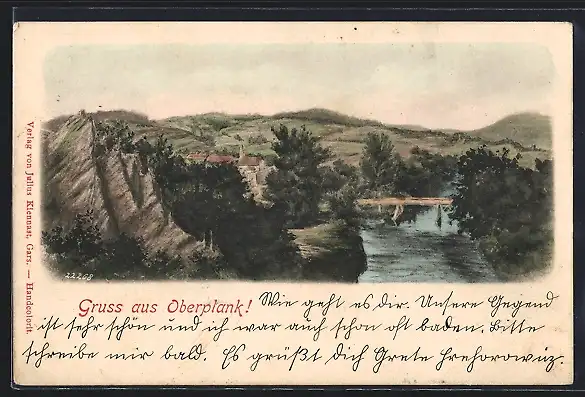 Verlag von Julius Kiennast, Gars. — Handcolorit.
22268
Gruss aus Oberplank! Wie geht es dir. Unsere Gegend
ist sehr schön und ich war auch schon oft baden. Bitte
schreibe mir bald. Es grüßt dich Grete